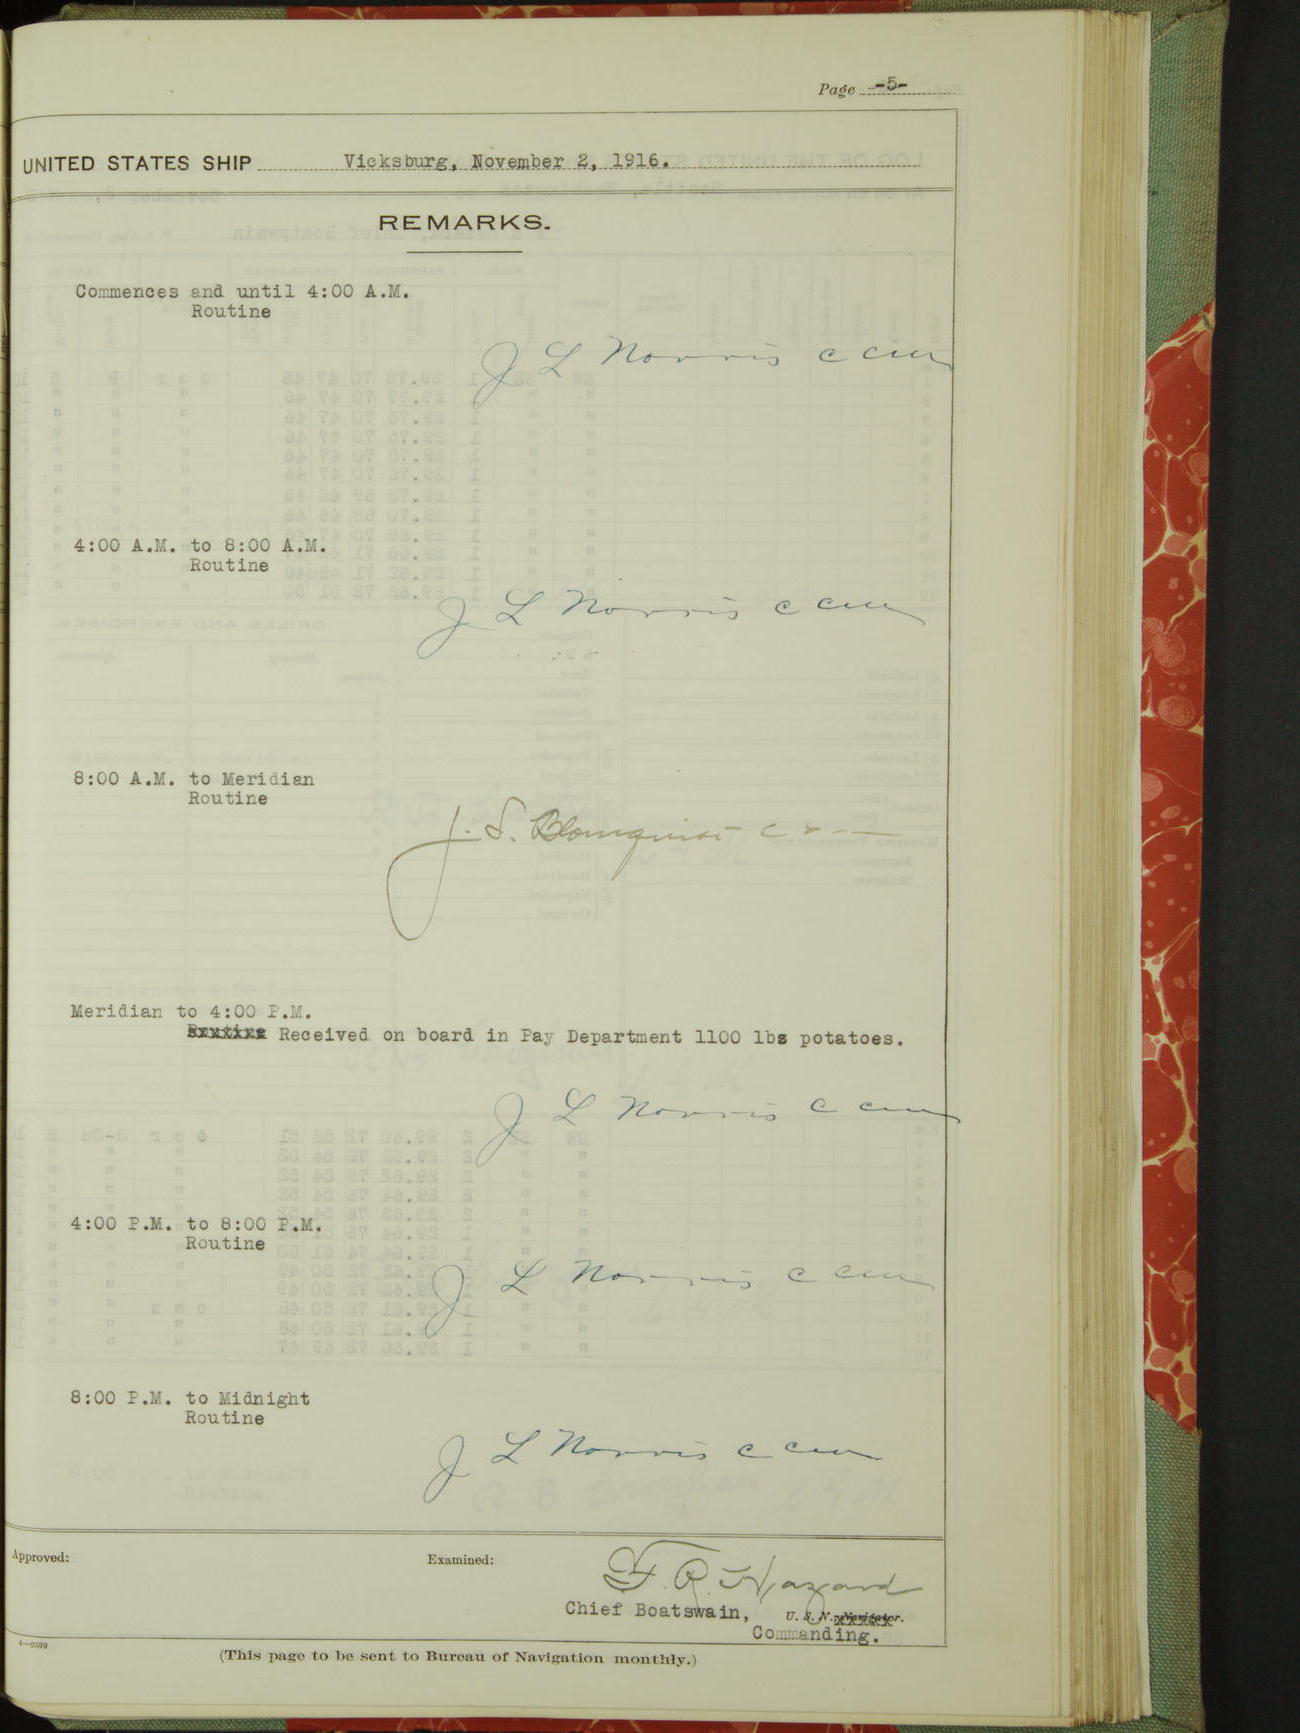 Page -5-
UNITED STATES SHIP Vicksburg, November 2, 1916.
REMARKS.
Commences and until 4:00 A.M.
Routine
J L Norris c cm
4:00 A.M. to 8:00 A.M.
Routine
J L Norris c cm
8:00 A.M. to Meridian
Routine
J. S. Blomquist
Meridian to 4:00 P.M.
Routine Received on board in Pay Department 1100 lbs potatoes.
J L Norris c cm
4:00 P.M. to 8:00 P.M.
Routine
J L Norris c cm
8:00 P.M. to Midnight
Routine
J L Norris c cm
Approved:
Examined:
F. R. Hazard
Chief Boatswain, U. S. N., Navigator.
Commanding.
4—2599
(This page to be sent to Bureau of Navigation monthly.)